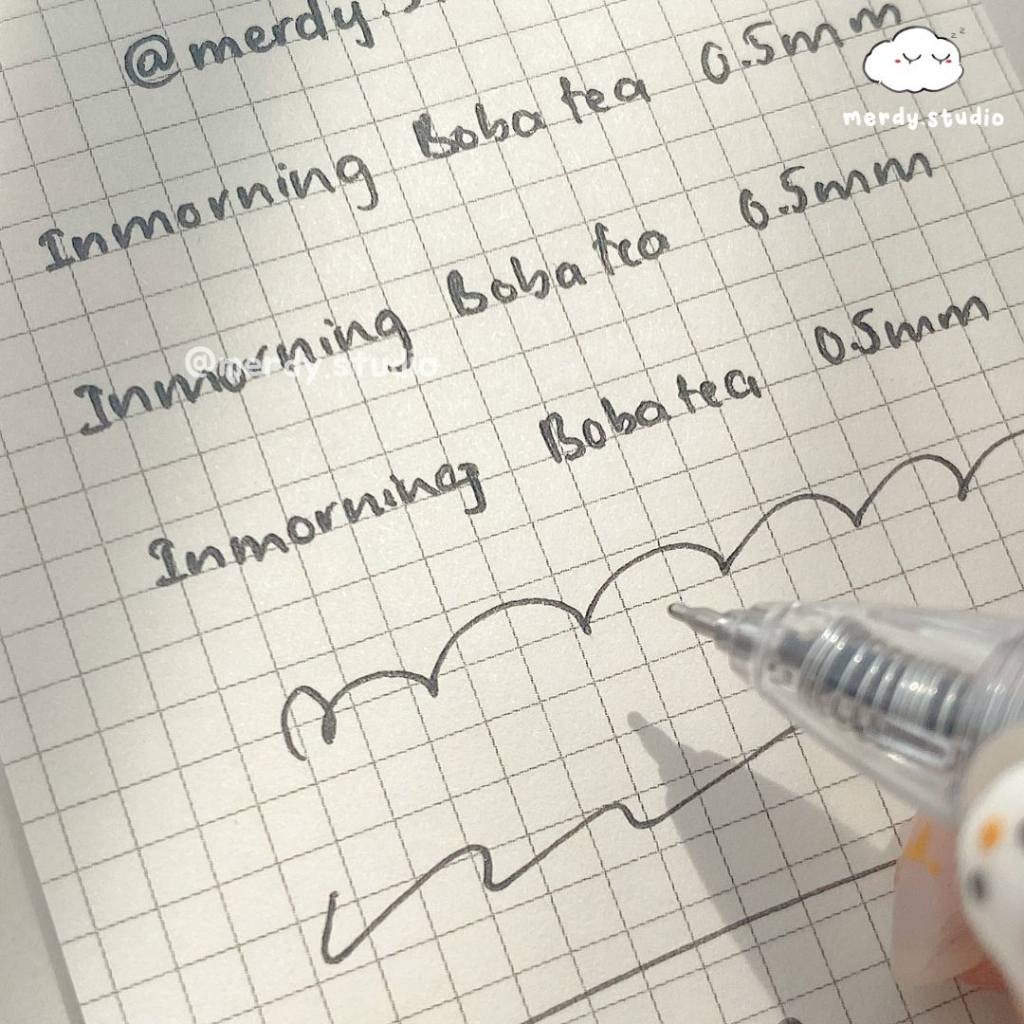 @merdy.s
Inmorning Boba tea 0.5mm
merdy.studio
Inmorning Boba tea 0.5mm
@merdy.studio
Inmorning Boba tea 0.5mm